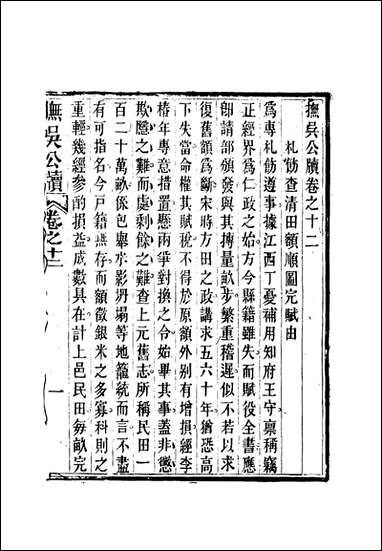 撫吳公牘卷之十二
札飭查清田額順圖完賦由
爲專札飭遵事據江西丁憂補用知府王守稟稱竊
正經界爲仁政之始方今縣籍雖失而賦役全書應
卽請部頒發與其摶量畝步繁重稽遲似不若以求
復舊額爲斷宋時方田之政講求五六十年猶恐高
下失當命權其賦稅不得於原額外别有增損經李
椿年專意措置懸兩爭對換之令始畢其事蓋非懲
欺隱之難而虞剩餘之難查上元舊志所稱民田一
百二十萬畝係包舉水影坍塌等地籠統而言不盡
有可指名今戸籍無存而額徵銀米之多寡科則之
重輕幾經參酌損益成數具在計上邑民田每畝完
撫吳公牘
卷之十二
一